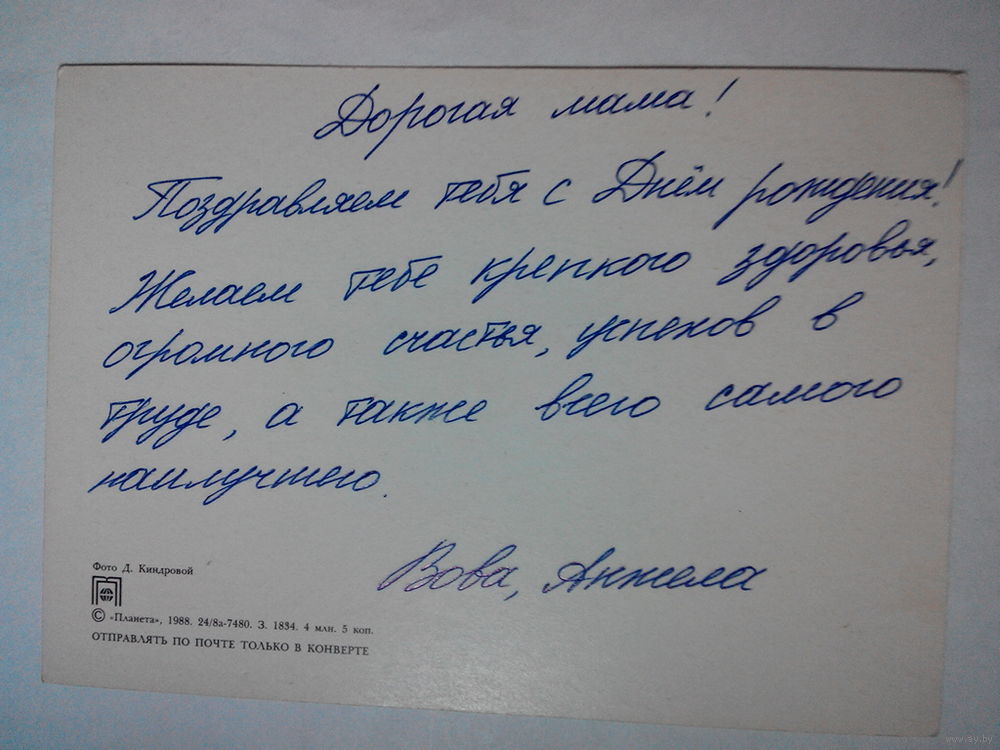 Дорогая мама!
Поздравляем тебя с Днём рождения!
Желаем тебе крепкого здоровья,
огромного счастья, успехов в
труде, а также всего самого
наилучшего.
Вова, Анжела
Фото Д. Киндровой
© «Планета», 1988. 24/8а-7480. З. 1834. 4 млн. 5 коп.
ОТПРАВЛЯТЬ ПО ПОЧТЕ ТОЛЬКО В КОНВЕРТЕ
www.ay.by